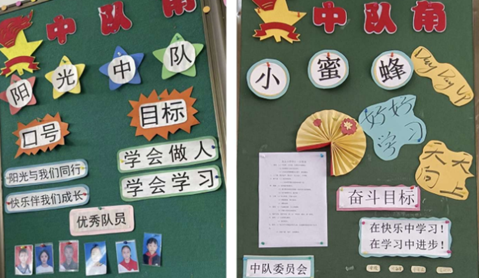 中队角
阳光中队
口号
目标
阳光与我们同行
快乐伴我们成长
学会做人
学会学习
优秀队员
中队角
小蜜蜂
Day Day Up
好好
学习
天天
向上
奋斗目标
在快乐中学习!
在学习中进步!
中队委员会